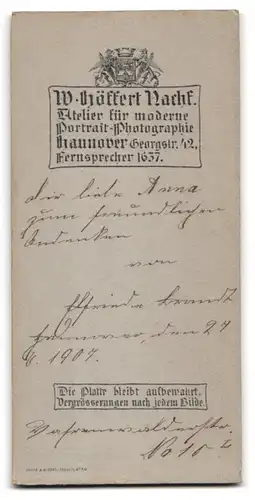 W. Höffert Nachf.
Atelier für moderne
Portrait-Photographie
Hannover Georgstr. 12,
Fernsprecher 1637.
Die liebe Anna
zum freundlichen
Andenken
von
Elfriede Brandt
Hannover, den 27
6. 1907.
Die Platte bleibt aufbewahrt.
Vergrösserungen nach jedem Bilde.
Vahrenwalderstr.
No 10 I